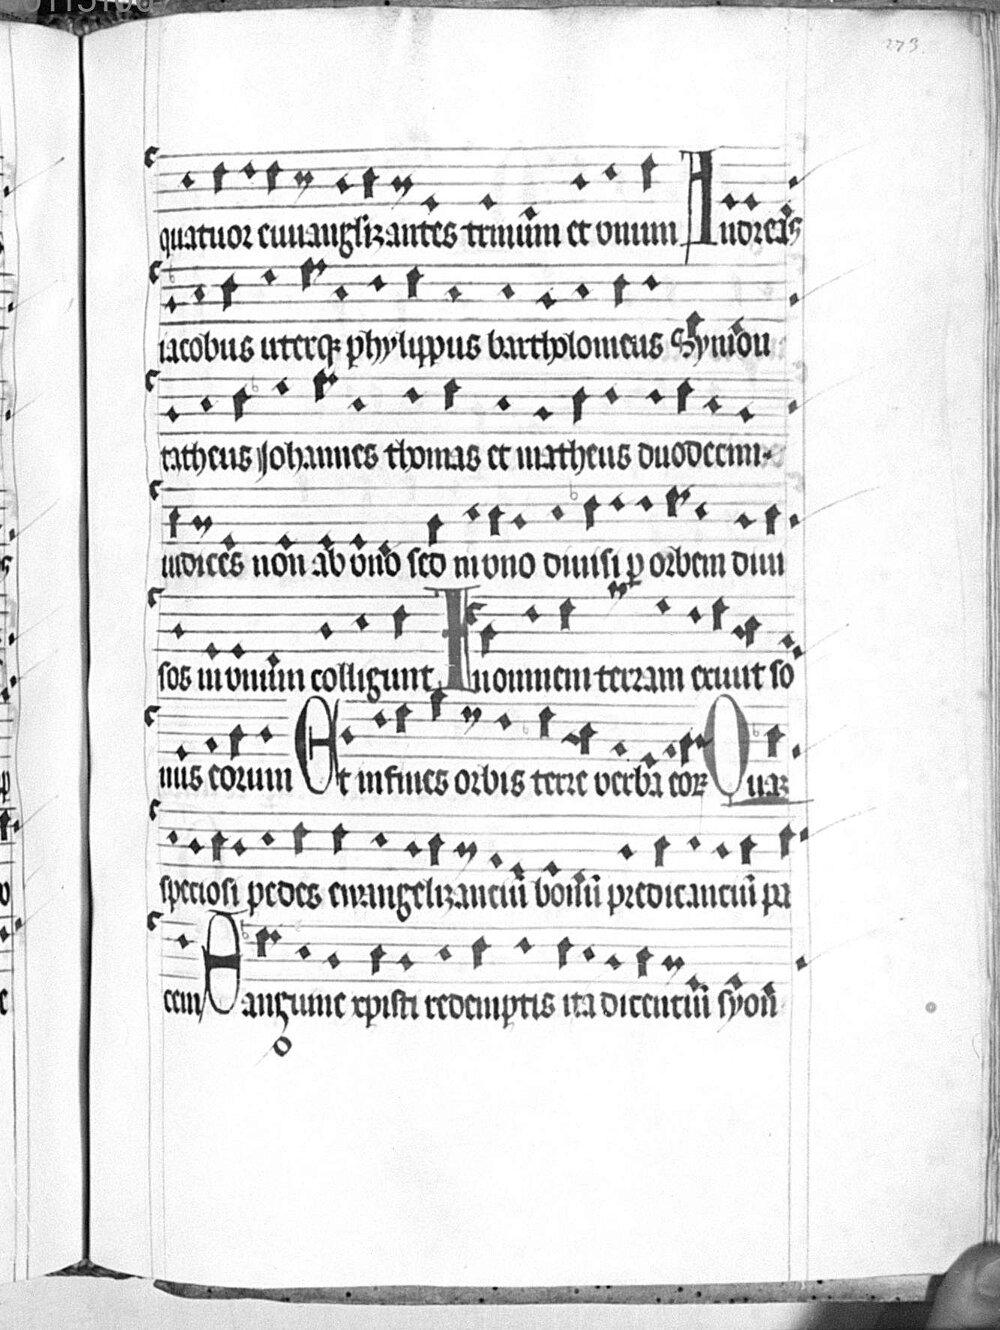 273
quatuor euuangelizantes trinum et unum Andreas
iacobus uterq phylippus bartholomeus Symon
tatheus Johannes thomas et matheus duodecim
iudices non ab uno sed in uno diuisi p orbem diui
sos in unum colligunt In omnem terram exiuit so
nus eorum Et in fines orbis terre verba eoꝝ Quaꝫ
speciosi pedes ewangelizanciū bonū predicanciū pa
cem A
sanguine xpisti redemptis ita dicentiū syon